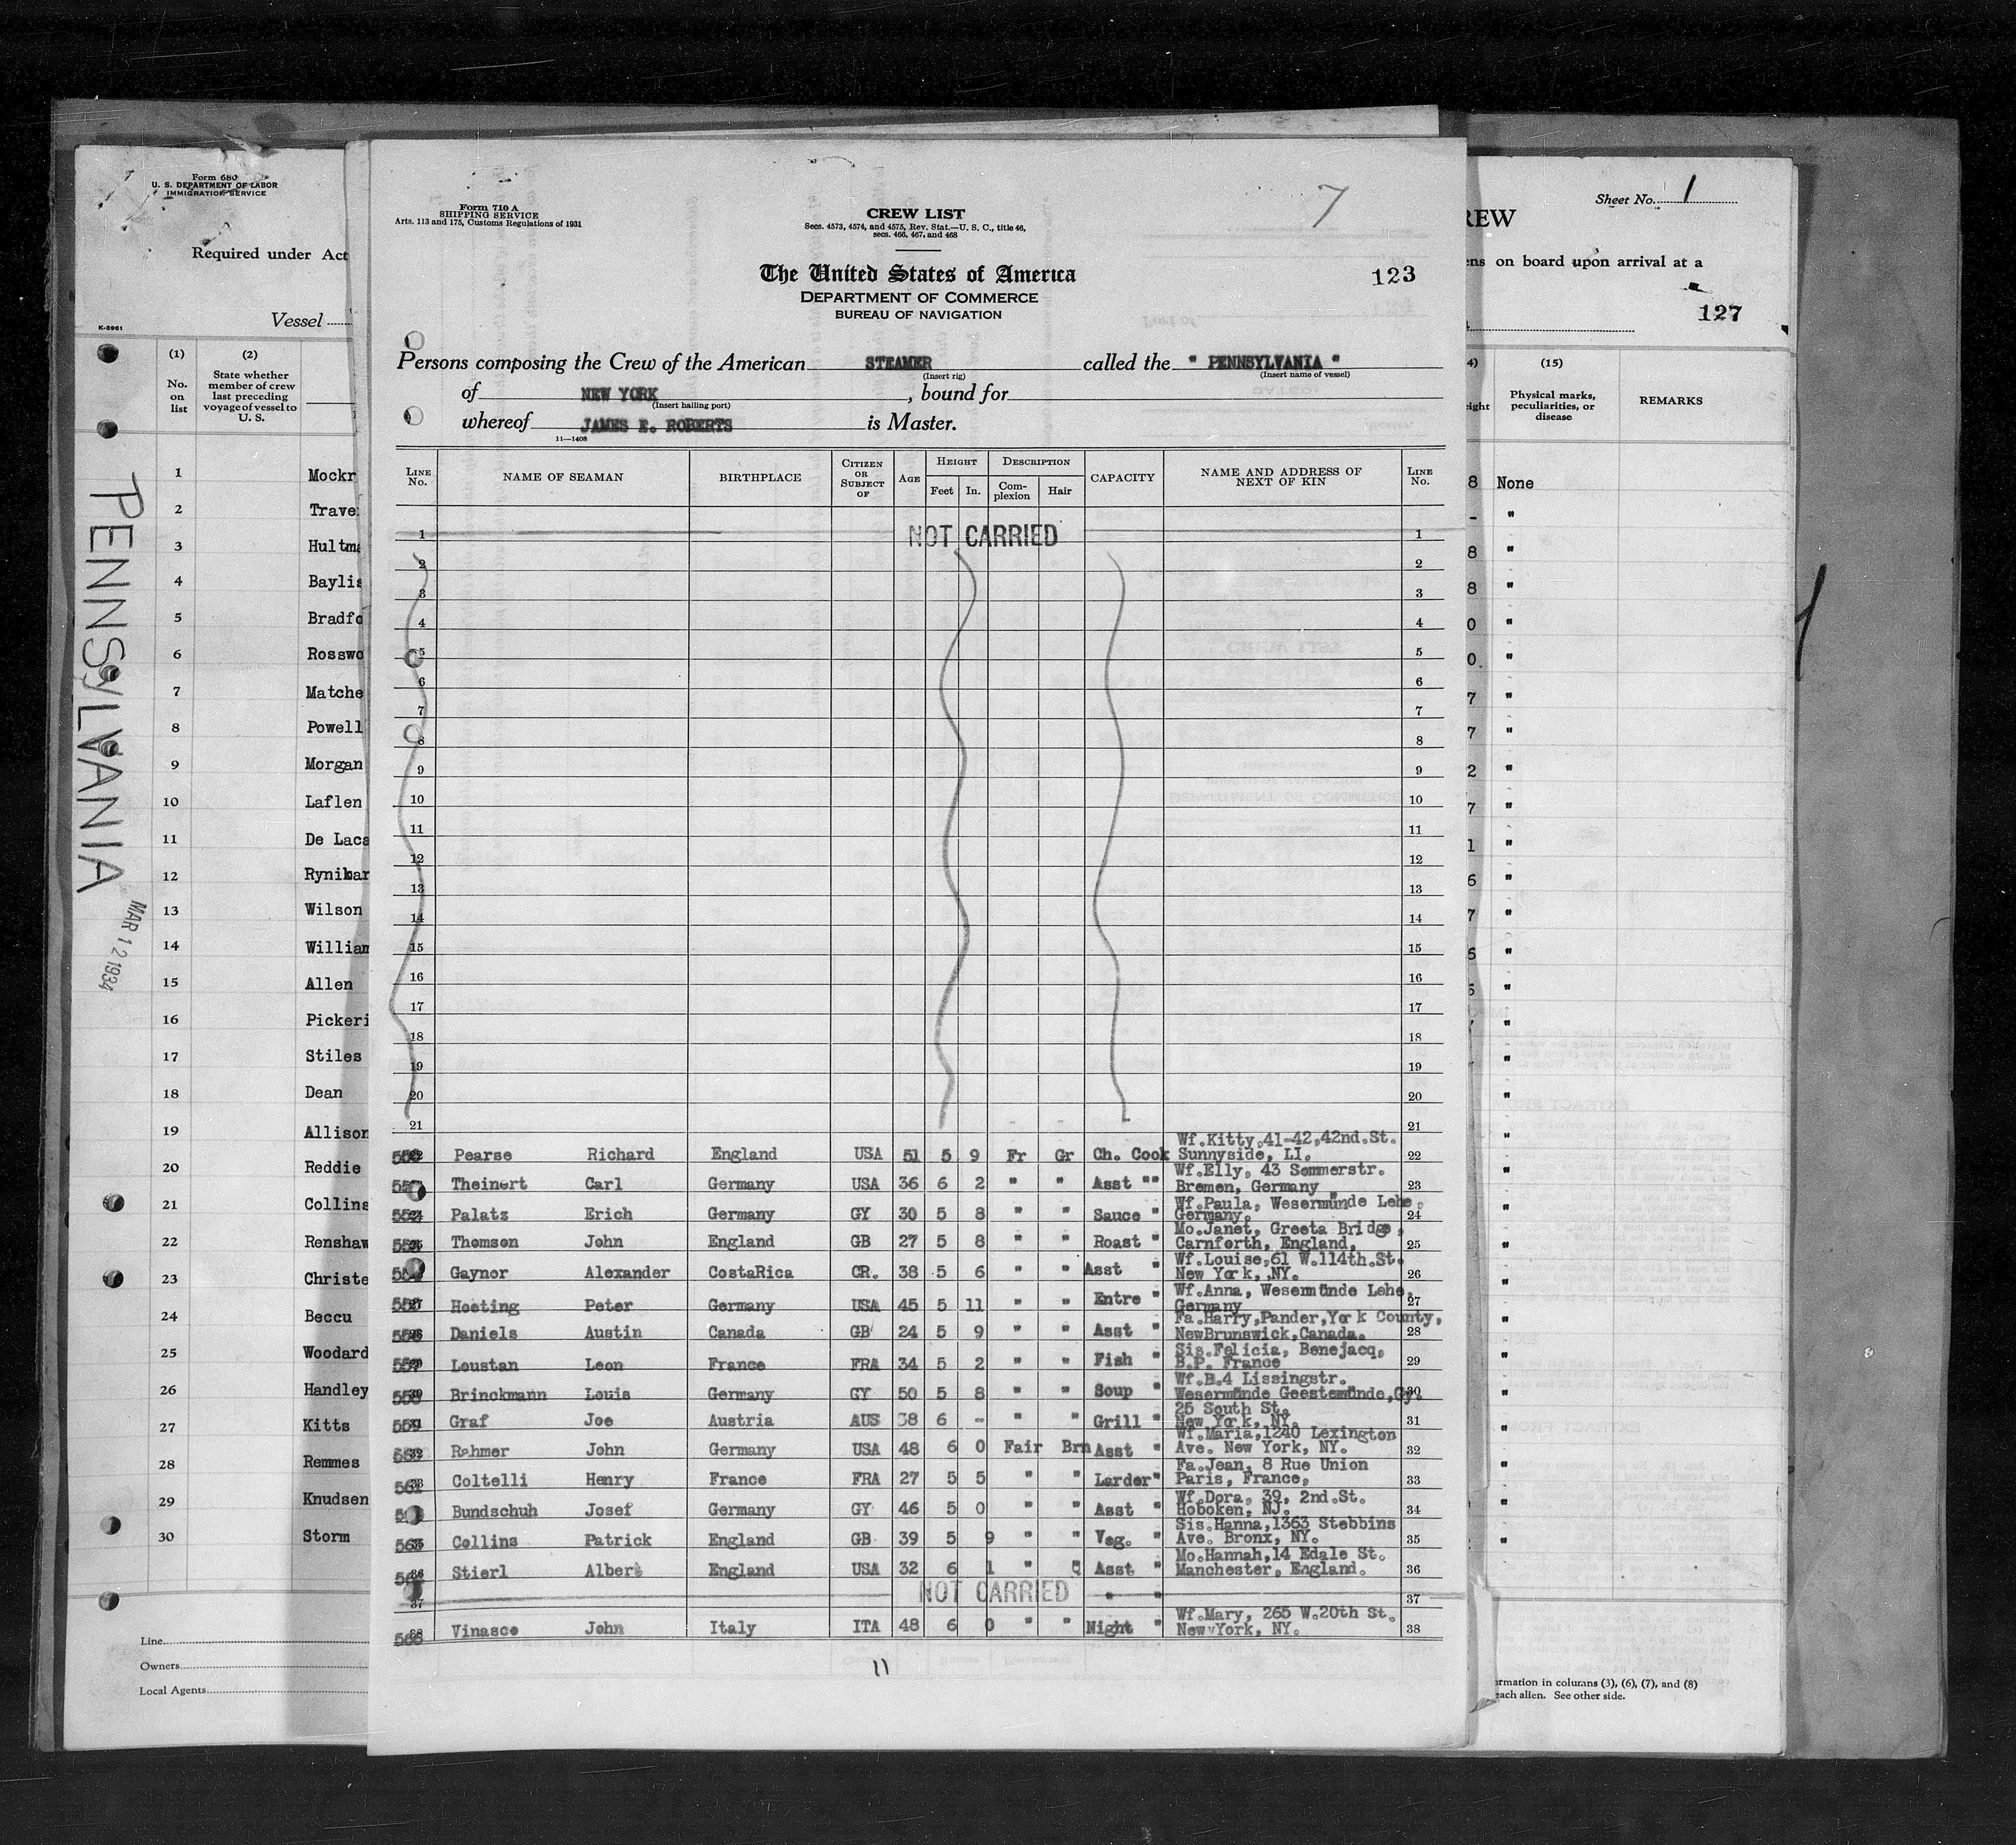 Form 680
U. S. DEPARTMENT OF LABOR
IMMIGRATION SERVICE
Required under Act
Vessel
K-3961
(1) (2)
No. on list
State whether member of crew last preceding voyage of vessel to U. S.
1 Mockr
2 Trave
3 Hultma
4 Baylis
5 Bradfo
6 Rosswo
7 Matche
8 Powell
9 Morgan
10 Laflen
11 De Laca
12 Rynikar
13 Wilson
14 William
15 Allen
16 Pickeri
17 Stiles
18 Dean
19 Allison
20 Reddie
21 Collins
22 Renshaw
23 Christe
24 Beccu
25 Woodard
26 Handley
27 Kitts
28 Remmes
29 Knudsen
30 Storm
Line
Owners
Local Agents
PENNSyLVANIA
MAR 12 1934
Form 710 A
SHIPPING SERVICE
Arts. 113 and 175, Customs Regulations of 1931
CREW LIST
Secs. 4573, 4574, and 4575, Rev. Stat.—U. S. C., title 46,
secs. 466, 467, and 468
7
The United States of America
DEPARTMENT OF COMMERCE
BUREAU OF NAVIGATION
123
Persons composing the Crew of the American STEAMER called the " PENNSYLVANIA "
(Insert rig) (Insert name of vessel)
of NEW YORK, bound for
(Insert hailing port)
whereof JAMES E. ROBERTS is Master.
11—1408
LINE No. NAME OF SEAMAN BIRTHPLACE CITIZEN OR SUBJECT OF AGE HEIGHT Feet In. DESCRIPTION Complexion Hair CAPACITY NAME AND ADDRESS OF NEXT OF KIN LINE No.
1 NOT CARRIED 1
2 2
3 3
4 4
5 5
6 6
7 7
8 8
9 9
10 10
11 11
12 12
13 13
14 14
15 15
16 16
17 17
18 18
19 19
20 20
21 21
Pearse Richard England USA 51 5 9 Fr Gr Ch. Cook Wf.Kitty,41-42,42nd.St. Sunnyside, LI. 22
Theinert Carl Germany USA 36 6 2 " " Asst "" Wf.Elly, 43 Sommerstr. Bremen, Germany 23
Palatz Erich Germany GY 30 5 8 " " Sauce " Wf.Paula, Wesermünde Lehe, Germany. 24
Thomson John England GB 27 5 8 " " Roast " Mo.Janet, Greeta Bridge, Carnforth, England, 25
Gaynor Alexander CostaRica CR. 38 5 6 " " Asst " Wf.Louise,61 W.114th.St. New York, NY. 26
Hoeting Peter Germany USA 45 5 11 " " Entre " Wf.Anna, Wesermünde Lehe, Germany 27
Daniels Austin Canada GB 24 5 9 " " Asst " Fa.Harry,Pander,York County, NewBrunswick,Canada. 28
Loustan Leon France FRA 34 5 2 " " Fish " Sis.Felicia, Benejacq, B.P. France 29
Brinckmann Louis Germany GY 50 5 8 " " Soup " Wf.B.4 Lissingstr. Wesermünde Geestemünde,Gy. 30
Graf Joe Austria AUS 38 6 - " " Grill " 25 South St. New York, NY. 31
Rahmer John Germany USA 48 6 0 Fair Brn Asst " Wf.Maria,1240 Lexington Ave. New York, NY. 32
Coltelli Henry France FRA 27 5 5 " " Larder" Fa.Jean, 8 Rue Union Paris, France, 33
Bundschuh Josef Germany GY 46 5 0 " " Asst " Wf.Dora, 39, 2nd.St. Hoboken, NJ. 34
Collins Patrick England GB 39 5 9 " " Veg. " Sis.Hanna,1363 Stebbins Ave. Bronx, NY. 35
Stierl Albert England USA 32 6 1 " Asst " Mo.Hannah,14 Edale St. Manchester, England. 36
37 NOT CARRIED " " 37
Vinasco John Italy ITA 48 6 0 " " Night " Wf.Mary, 265 W.20th St. New York, NY. 38
11
Sheet No. 1
REW
ens on board upon arrival at a
127
(15)
Physical marks, peculiarities, or disease
REMARKS
None
ormation in columns (3), (6), (7), and (8)
each alien. See other side.